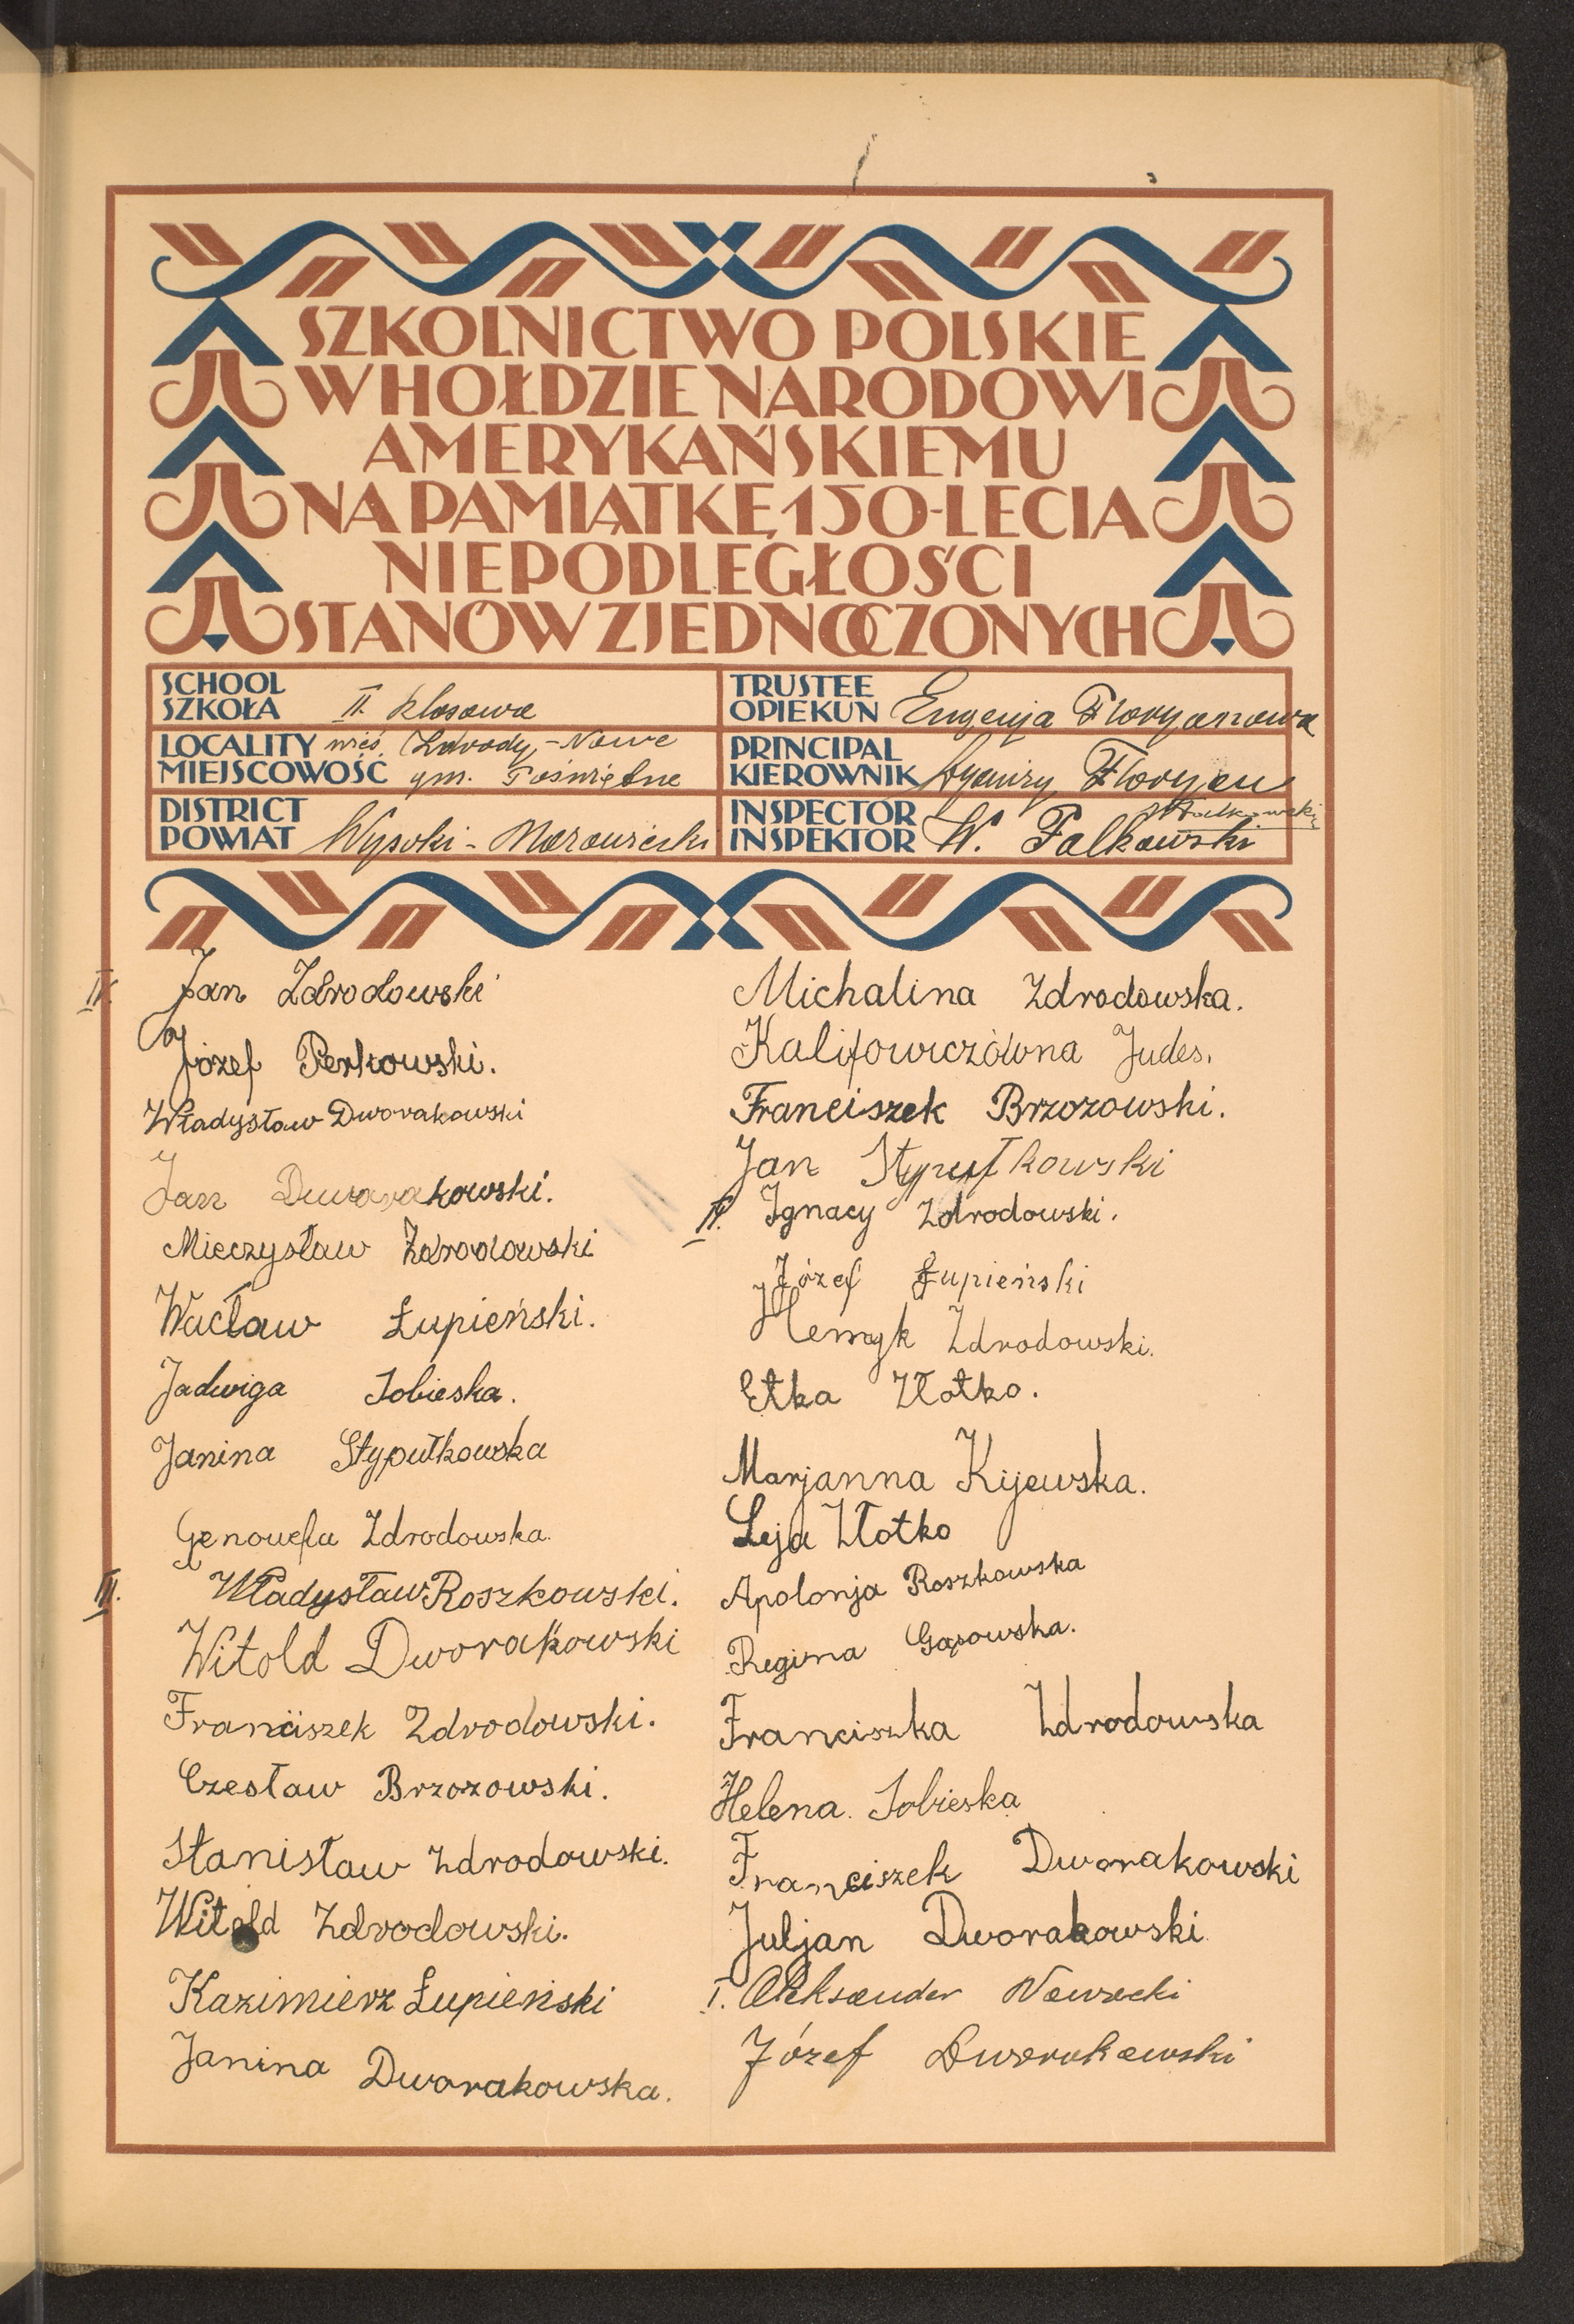 SZKOLNICTWO POLSKIE
W HOŁDZIE NARODOWI
AMERYKAŃSKIEMU
NA PAMIĄTKĘ 150-LECIA
NIEPODLEGŁOŚCI
STANÓW ZJEDNOCZONYCH
SCHOOL
SZKOŁA II. klasowa
LOCALITY wieś. Zdrody-Nowe
MIEJSCOWOŚĆ gm. Poświętne
DISTRICT
POWIAT Wysoki-Mazowiecki
TRUSTEE
OPIEKUN Eugenja Floryanowa
PRINCIPAL
KIEROWNIK Floryan
INSPECTOR
INSPEKTOR W. Falkowski
WFalkowski
IV. Jan Zdrodowski
Józef Perkowski.
Władysław Dworakowski
Jan Dworakowski.
Mieczysław Zdrodowski
Wacław Łupieński.
Jadwiga Sobieska.
Janina Stypułkowska
Genowefa Zdrodowska.
III. Władysław Roszkowski.
Witold Dworakowski
Franciszek Zdrodowski.
Czesław Brzozowski.
Stanisław Zdrodowski.
Witold Zdrodowski.
Kazimierz Łupieński
Janina Dworakowska.
Michalina Zdrodowska.
Kalifowiczówna Judes.
Franciszek Brzozowski.
Jan Stypułkowski
II. Ignacy Zdrodowski.
Józef Łupieński
Henryk Zdrodowski.
Etka Złotko.
Marjanna Kijewska.
Leja Złotko
Apolonja Roszkowska
Regina Gąsowska.
Franciszka Zdrodowska
Helena. Sobieska
Franciszek Dworakowski
Juljan Dworakowski
I. Aleksander Nawrocki
Józef Dworakowski